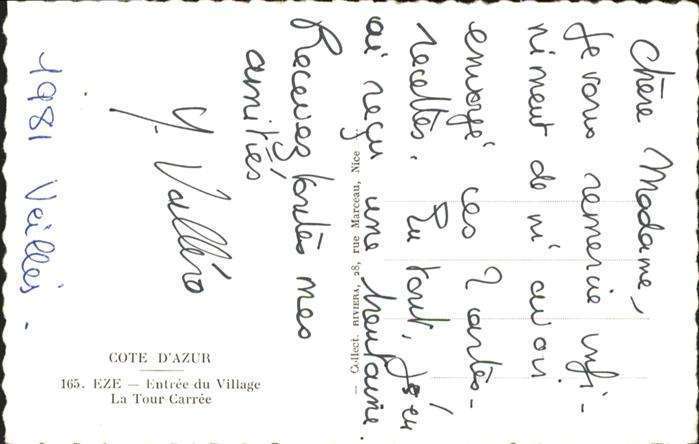 Chère Madame,
Je vous remercie infi-
niment de m'avoir
envoyé ces 2 cartes-
recettes. En tout, j'en
ai reçu une trentaine.
Recevez toutes mes
amitiés
Y. Valléro
1981 Veillès.
COTE D'AZUR
165. EZE — Entrée du Village
La Tour Carrée
— Collect. RIVIERA, 28, rue Marceau, Nice —